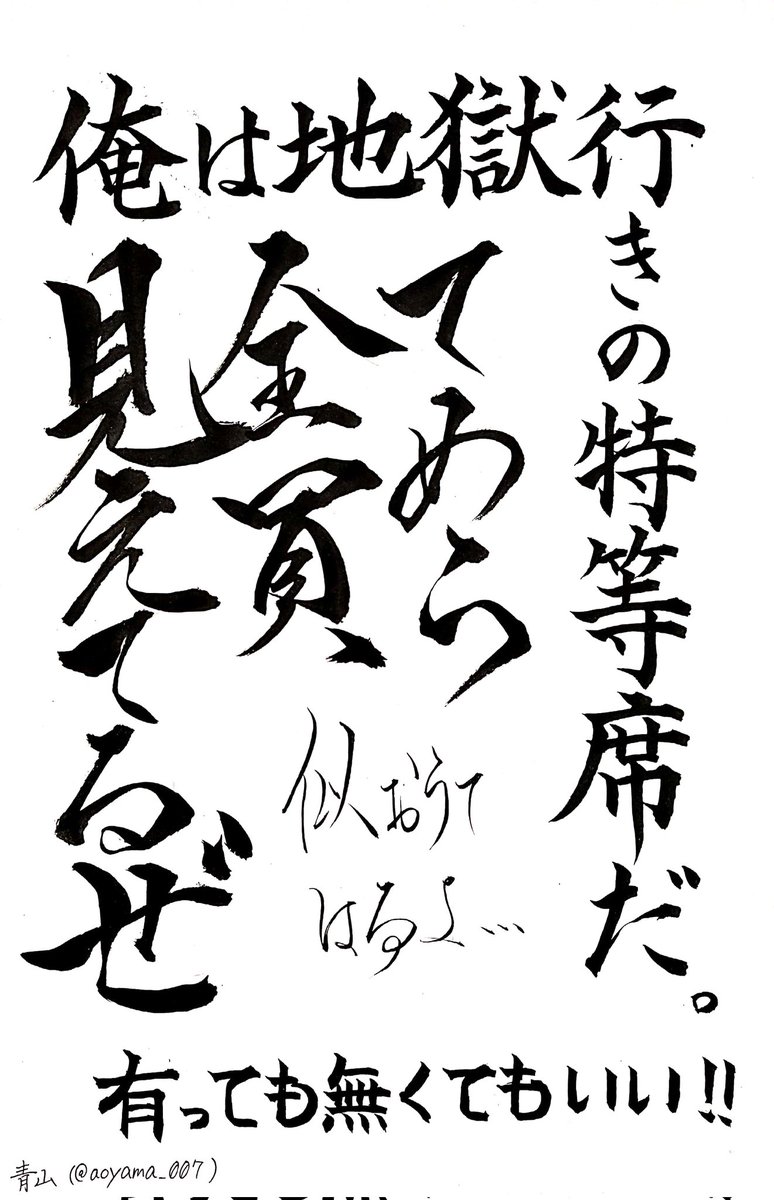 俺は地獄行
きの特等席だ。
てめら
全員、
見えてるぜ
似おうて
はるよ…
有っても無くてもいい!!
青山 (@aoyama_007)